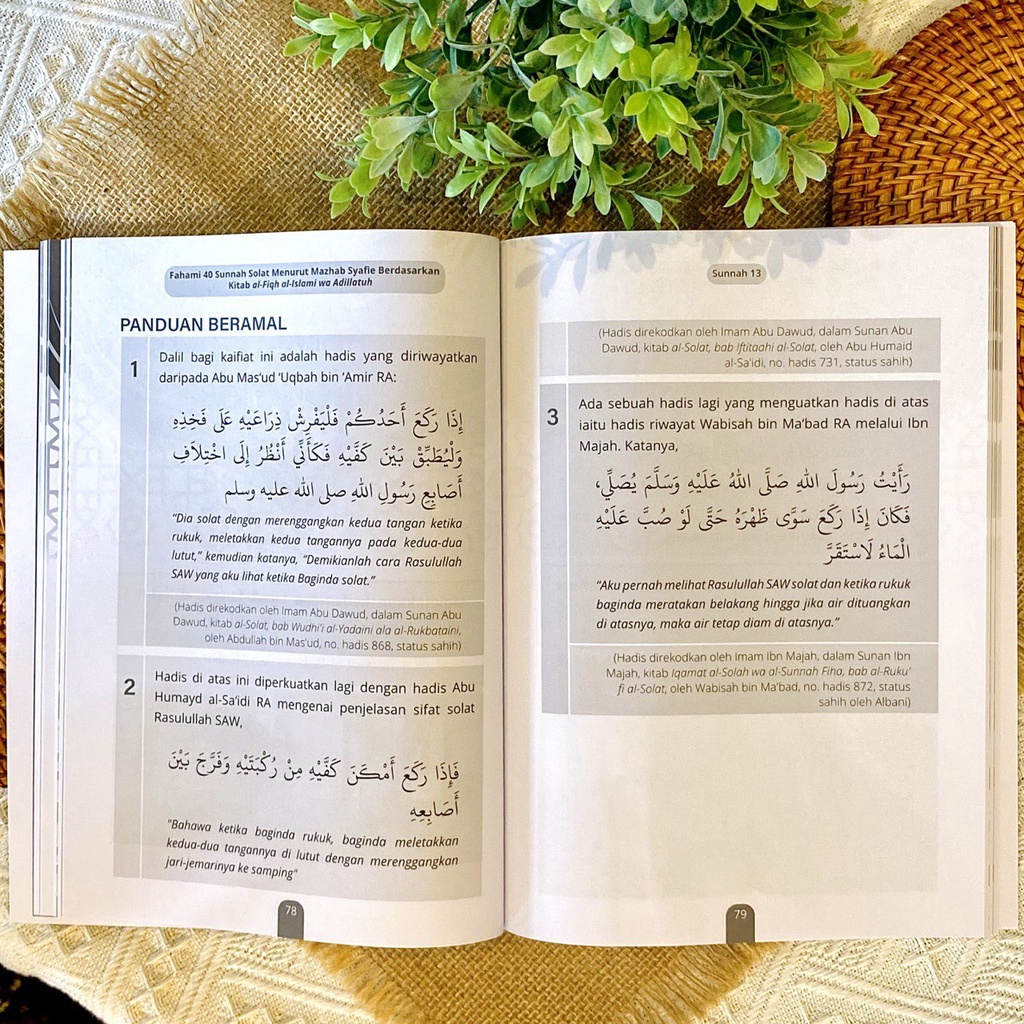 Fahami 40 Sunnah Solat Menurut Mazhab Syafie Berdasarkan
Kitab al-Fiqh al-Islami wa Adillatuh
PANDUAN BERAMAL
1
Dalil bagi kaifiat ini adalah hadis yang diriwayatkan
daripada Abu Mas'ud 'Uqbah bin 'Amir RA:
إِذَا رَكَعَ أَحَدُكُمْ فَلْيَفْرِشْ ذِرَاعَيْهِ عَلَى فَخِذِهِ
وَلْيُطَبِّقْ بَيْنَ كَفَّيْهِ فَكَأَنِّي أَنْظُرُ إِلَى اخْتِلَافِ
أَصَابِعِ رَسُولِ اللهِ صلى الله عليه وسلم
"Dia solat dengan merenggangkan kedua tangan ketika
rukuk, meletakkan kedua tangannya pada kedua-dua
lutut," kemudian katanya, "Demikianlah cara Rasulullah
SAW yang aku lihat ketika Baginda solat."
(Hadis direkodkan oleh Imam Abu Dawud, dalam Sunan Abu
Dawud, kitab al-Solat, bab Wudhi'i al-Yadaini ala al-Rukbataini,
oleh Abdullah bin Mas'ud, no. hadis 868, status sahih)
2
Hadis di atas ini diperkuatkan lagi dengan hadis Abu
Humayd al-Sa'idi RA mengenai penjelasan sifat solat
Rasulullah SAW,
فَإِذَا رَكَعَ أَمْكَنَ كَفَّيْهِ مِنْ رُكْبَتَيْهِ وَفَرَّجَ بَيْنَ
أَصَابِعِهِ
"Bahawa ketika baginda rukuk, baginda meletakkan
kedua-dua tangannya di lutut dengan merenggangkan
jari-jemarinya ke samping"
78
Sunnah 13
(Hadis direkodkan oleh Imam Abu Dawud, dalam Sunan Abu
Dawud, kitab al-Solat, bab Iftitaahi al-Solat, oleh Abu Humaid
al-Sa'idi, no. hadis 731, status sahih)
3
Ada sebuah hadis lagi yang menguatkan hadis di atas
iaitu hadis riwayat Wabisah bin Ma'bad RA melalui Ibn
Majah. Katanya,
رَأَيْتُ رَسُولَ اللهِ صَلَّى اللهُ عَلَيْهِ وَسَلَّمَ يُصَلِّي،
فَكَانَ إِذَا رَكَعَ سَوَّى ظَهْرَهُ حَتَّى لَوْ صُبَّ عَلَيْهِ
الْمَاءُ لَاسْتَقَرَّ
"Aku pernah melihat Rasulullah SAW solat dan ketika rukuk
baginda meratakan belakang hingga jika air dituangkan
di atasnya, maka air tetap diam di atasnya."
(Hadis direkodkan oleh Imam Ibn Majah, dalam Sunan Ibn
Majah, kitab Iqamat al-Solah wa al-Sunnah Fiha, bab al-Ruku'
fi al-Solat, oleh Wabisah bin Ma'bad, no. hadis 872, status
sahih oleh Albani)
79